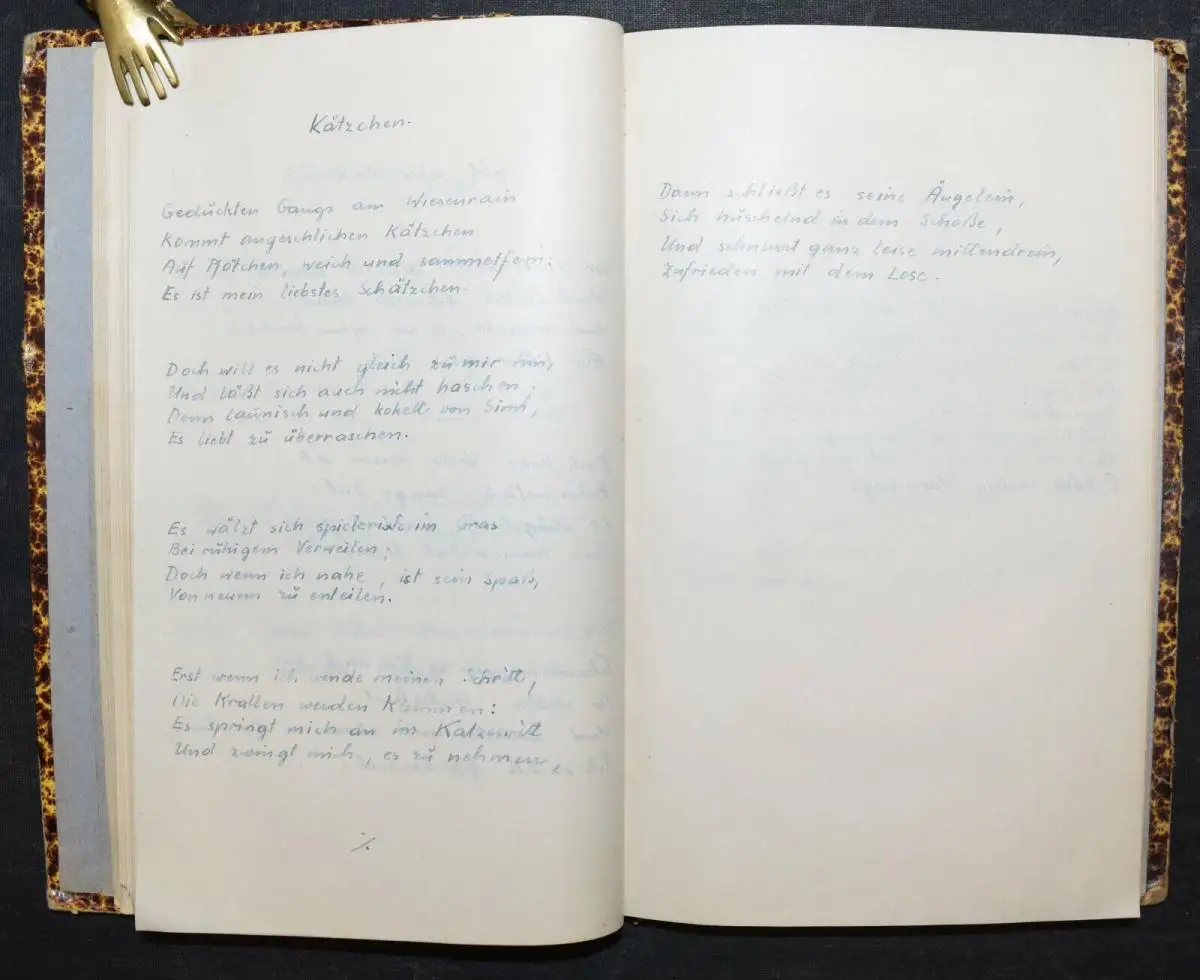 Kätzchen.
Gedückten Gangs am Wiesenrain
Kommt angeschlichen Kätzchen
Auf Pfötchen, weich und sammetfein:
Es ist mein liebstes Schätzchen.
Doch will es nicht gleich zu mir hin,
Und läßt sich auch nicht haschen.
Denn launisch und kokett von Sinn,
Es liebt zu überraschen.
Es wälzt sich spielerisch im Gras
Bei ruhigem Verweilen;
Doch wenn ich nahe, ist sein Spaß,
Von neuem zu enteilen.
Erst wenn ich wende meinen Schritt,
Die Krallen werden Klemmen:
Es springt mich an im
Und zwingt mich, es zu nehmen,
./.
Dann schließt es seine Äugelein,
Sich huschelnd in dem Schoße,
Und schnurrt ganz leise mittendrein,
Zufrieden mit dem Lose.